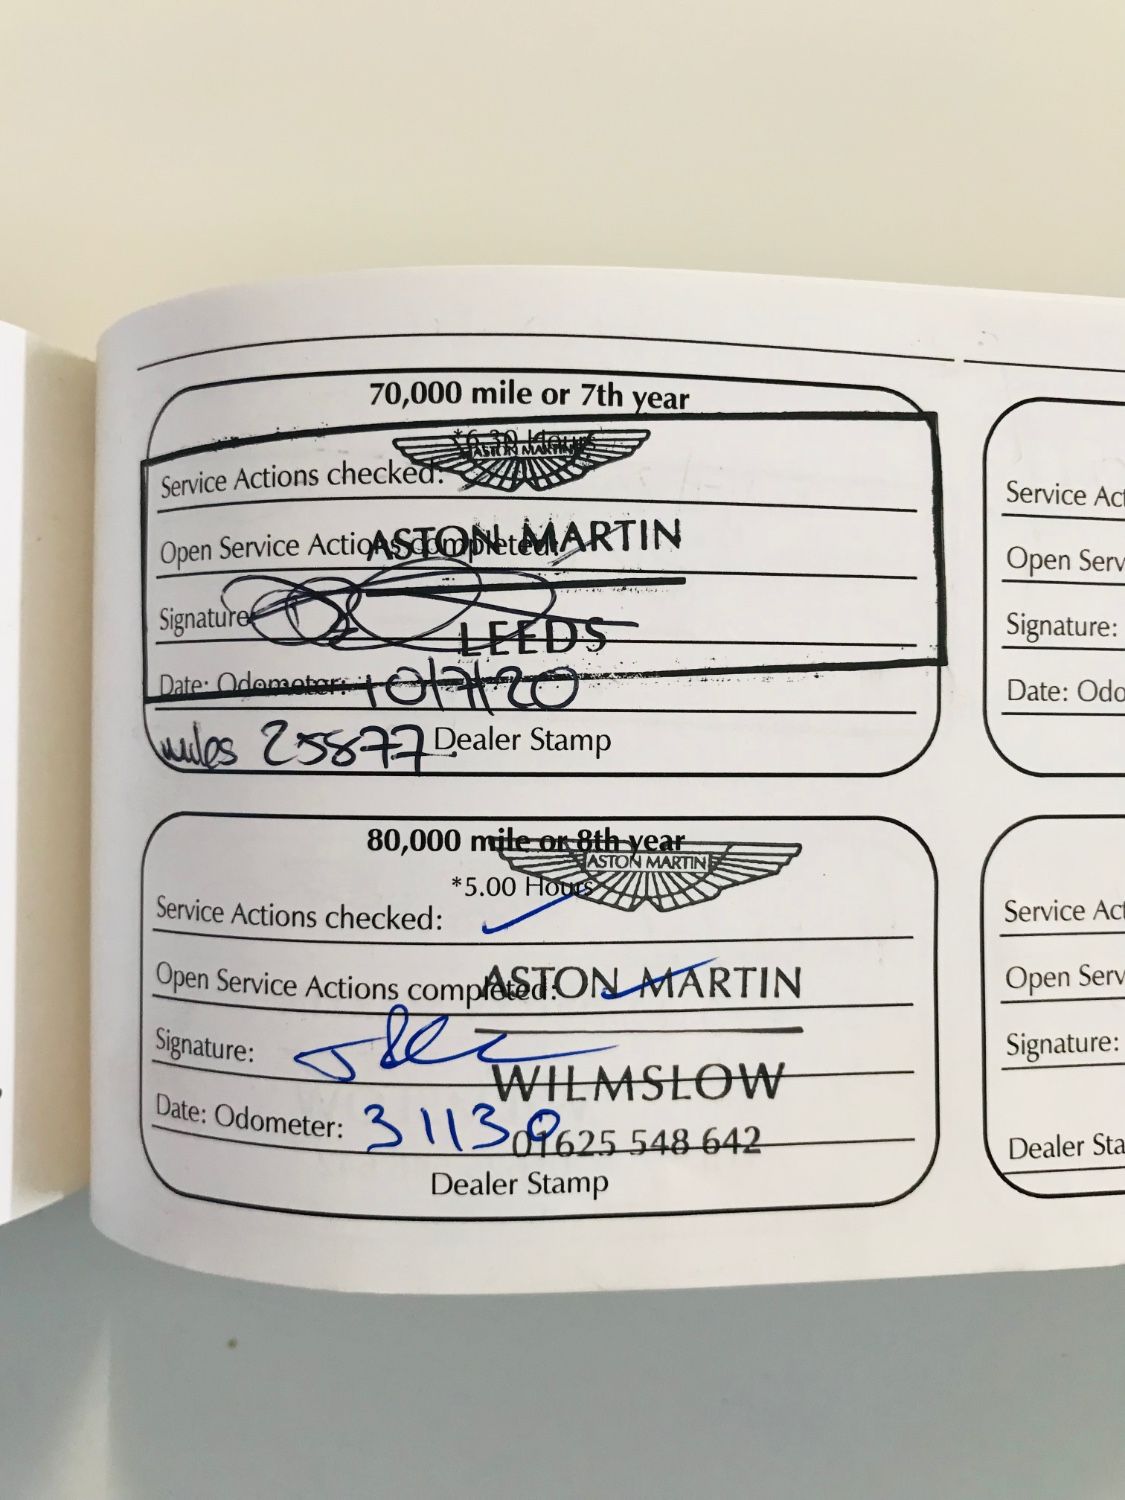 70,000 mile or 7th year
*6.30 Hours
ASTON MARTIN
Service Actions checked:
Open Service Actions completed:
ASTON MARTIN
Signature:
LEEDS
Date: Odometer: 10/7/20
miles 25877 Dealer Stamp
80,000 mile or 8th year
ASTON MARTIN
*5.00 Hours
Service Actions checked:
Open Service Actions completed:
ASTON MARTIN
Signature:
WILMSLOW
Date: Odometer: 31130
01625 548 642
Dealer Stamp
Service Act
Open Serv
Signature:
Date: Odo
Service Act
Open Serv
Signature:
Dealer Sta